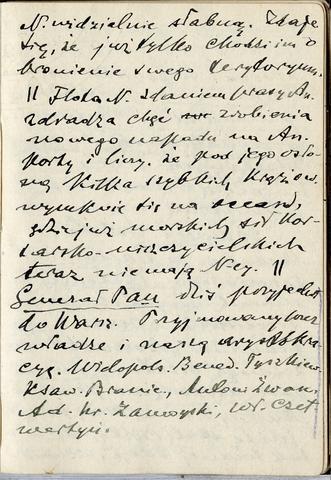 N. widzialnie słabną. Zdaje
się, że już tylko chodzi im o
bronienie swego terytoryum.
|| Flota N. zdaniem prasy An.
zdradza chęć zrobienia
nowego napadu na An.
porty i liczy, że pod jego osło-
ną kilka szybkich krążow.
wymknie się na ocean,
gdzie już morskich sił kor-
sarsko-niszczycielskich
teraz nie mają Ney. ||
Generał Pau dziś przyjechał
do Warsz. Przyjmowany przez
władze i naszą arystokra-
cyę. Wielopols. Bened. Tyszkiew.
Ksaw. Branic., Antoni Żwan.
Ad. hr. Zamoyski, Wł. Czet-
wertyń.